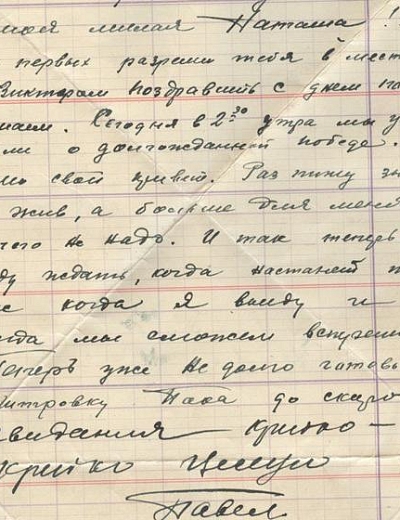 моя милая Наташа!
первых разреши тебя вмест
Виктором поздравить с днем
Сегодня в 2 30 утра мы у
ли о долгожданной победе.
свой привет. Раз пишу
жив, а больше для меня
чего не надо. И так теперь
ду ждать, когда настанет
когда я выйду и
гда мы сможем встретит
Теперь уже не долго готовь
литровку Пока до скоро
свидания крепко —
крепко целую
Павел